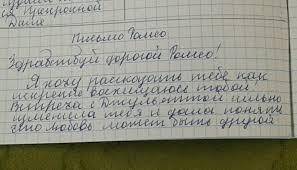 ся Прекрасной
Даме
Письмо Ромео
Здравствуй дорогой Ромео!
Я хочу рассказать тебе как
искренне восхищаюсь тобой!
Встреча с Джульеттой сильно
изменила тебя и дала понять
что любовь может быть другой